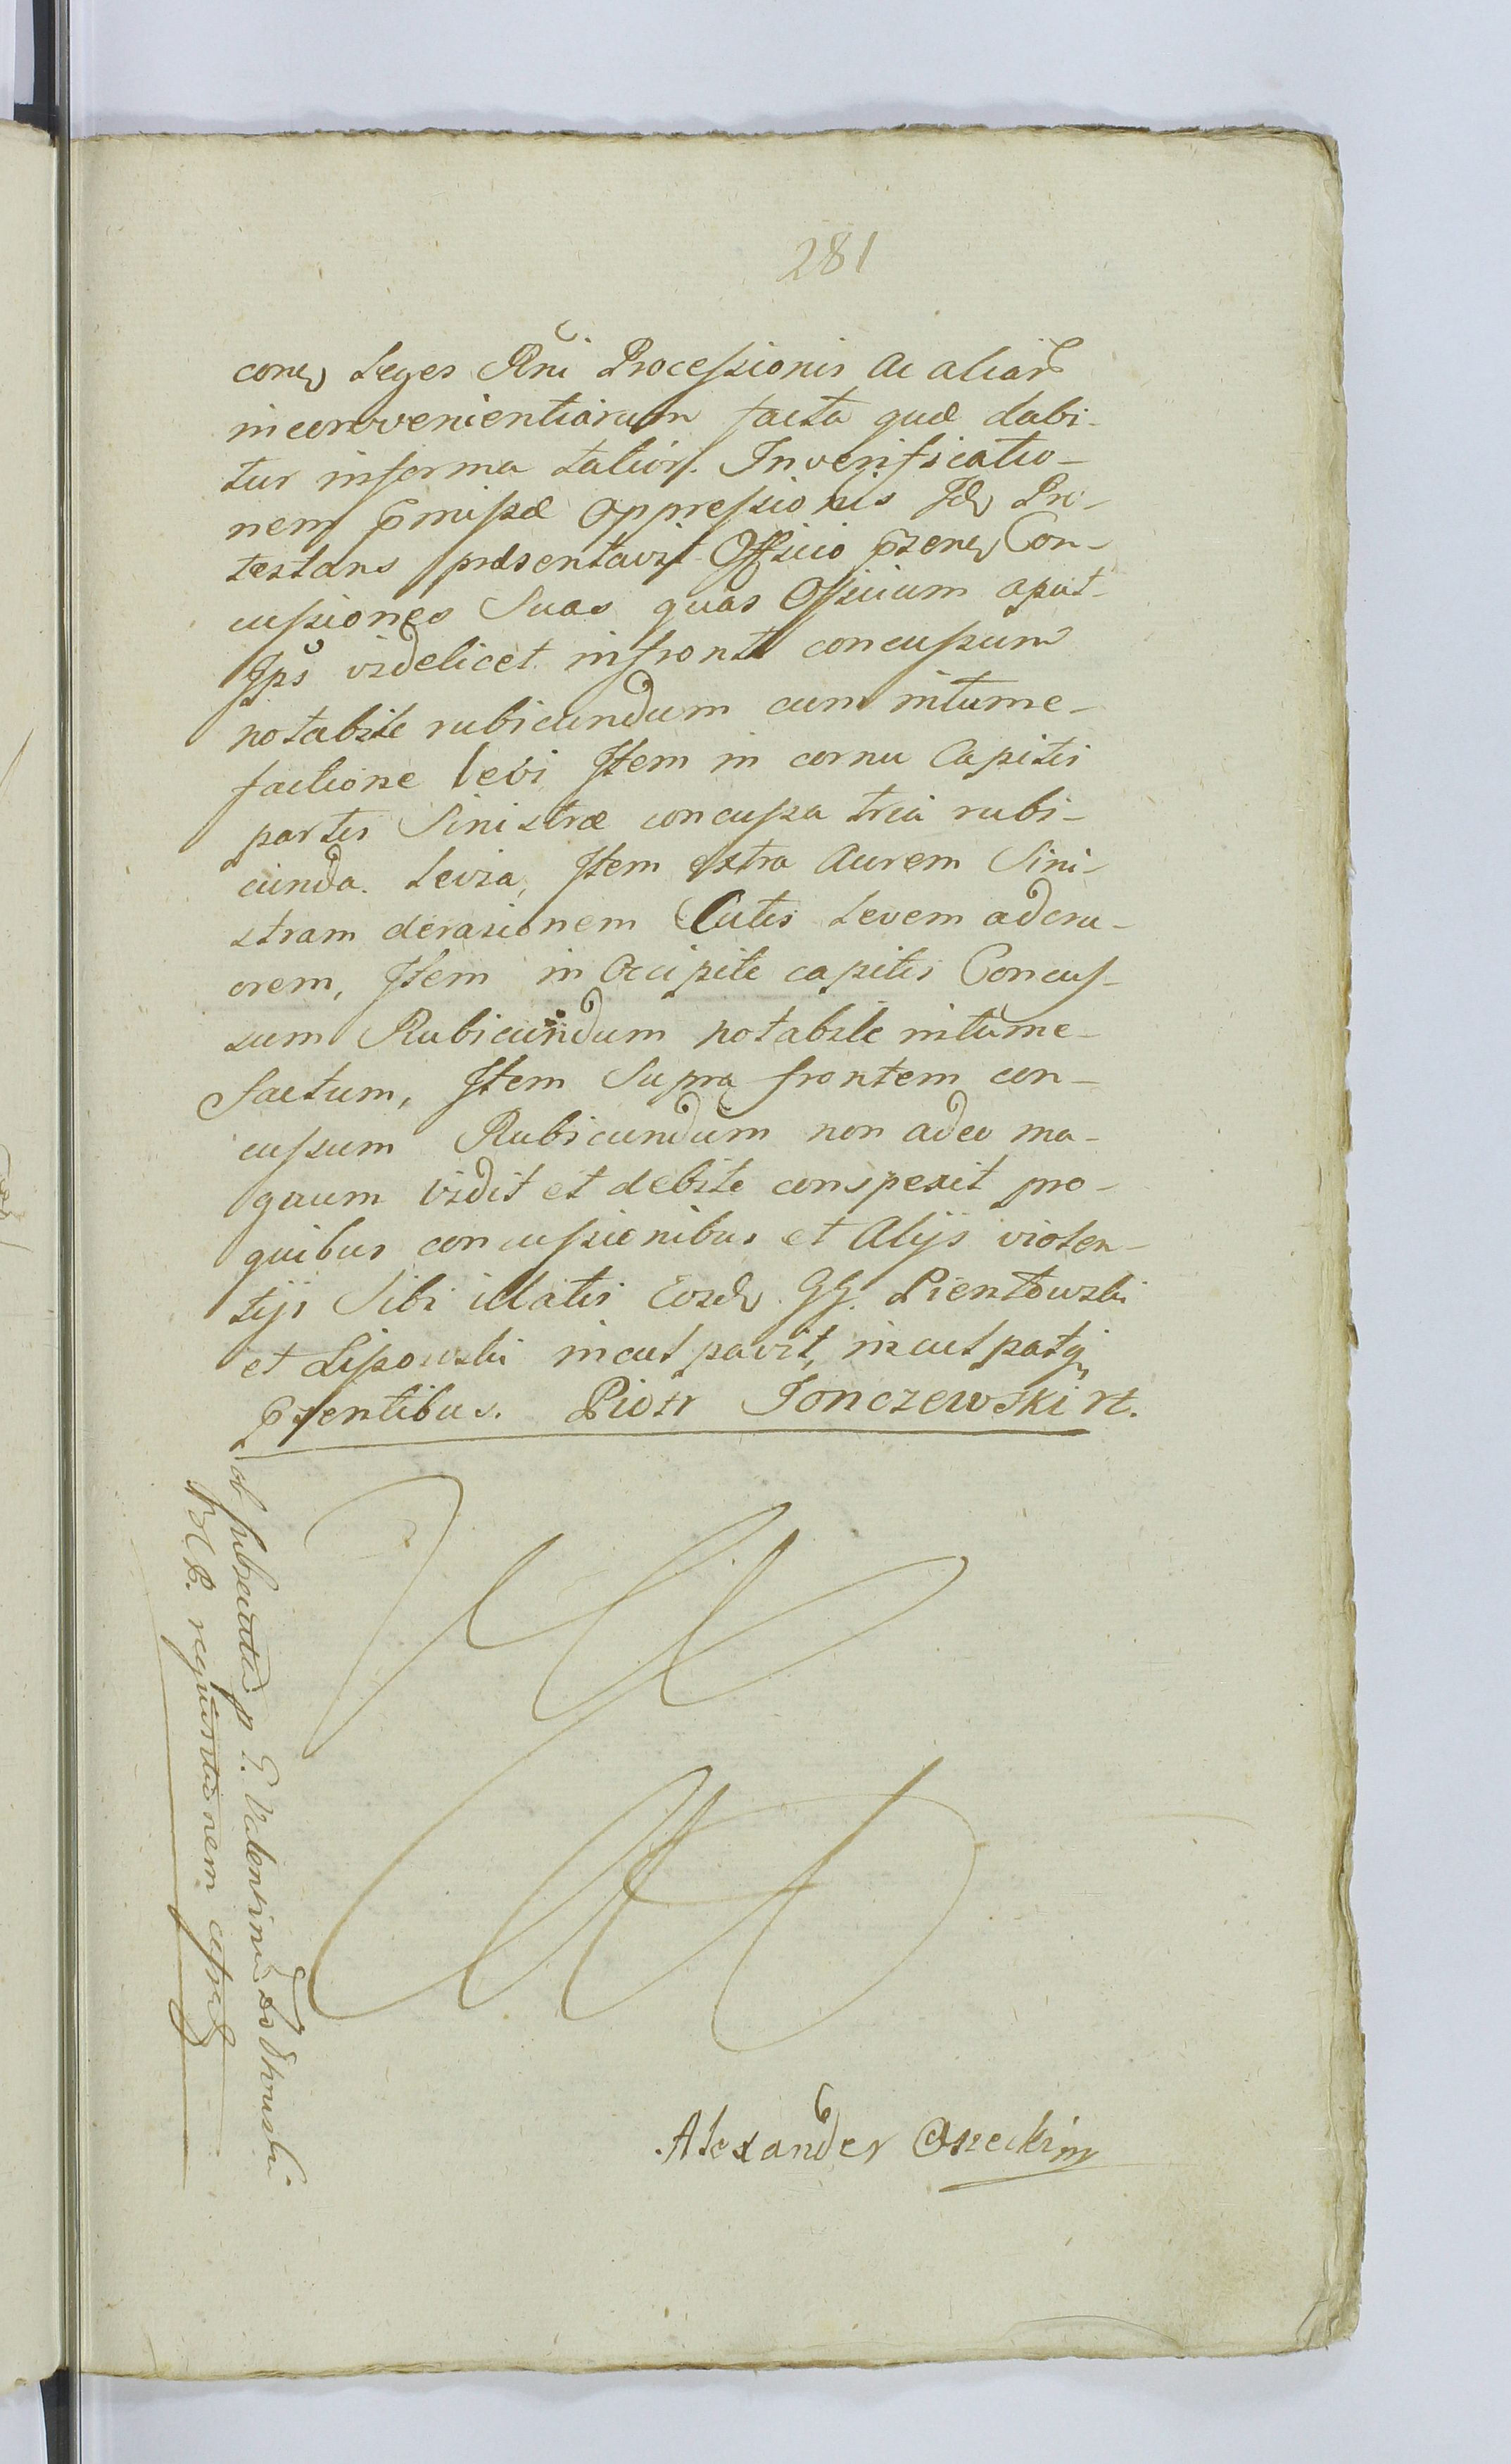 281
cone Leges Rni Processionis ac aliar
inconvenientiarum facta quæ dabi-
tur informa talior. In verificatio-
nem pmissæ Oppressionis Id Pro-
testans præsentavit Officio pzene Con-
cussiones Suas quas Officium aput
Ips videlicet infronte concussum
notabile rubicundum cum intume-
factione levi Item in cornu Capitis
partis Sinistræ concussa tria rubi-
cunda Levia, Item extra Aurem Sini-
stram derasionem Cutis Levem ad cru-
orem, Item in Occipite capitis Concus-
sum Rubicundum notabile intume-
factum, Item Supra frontem con-
cussum Rubicundum non adeo ma-
gnum vidit et debite conspexit pro-
quibus concussionibus et Alijs violen-
tijs Sibi illatis Eosd GG. Pientowski
et Lipowski inculpavit, inculpatq
pzentibus. Piotr Jonczewski rt.
ob p G. Valentinu
requisitionem
Alexander